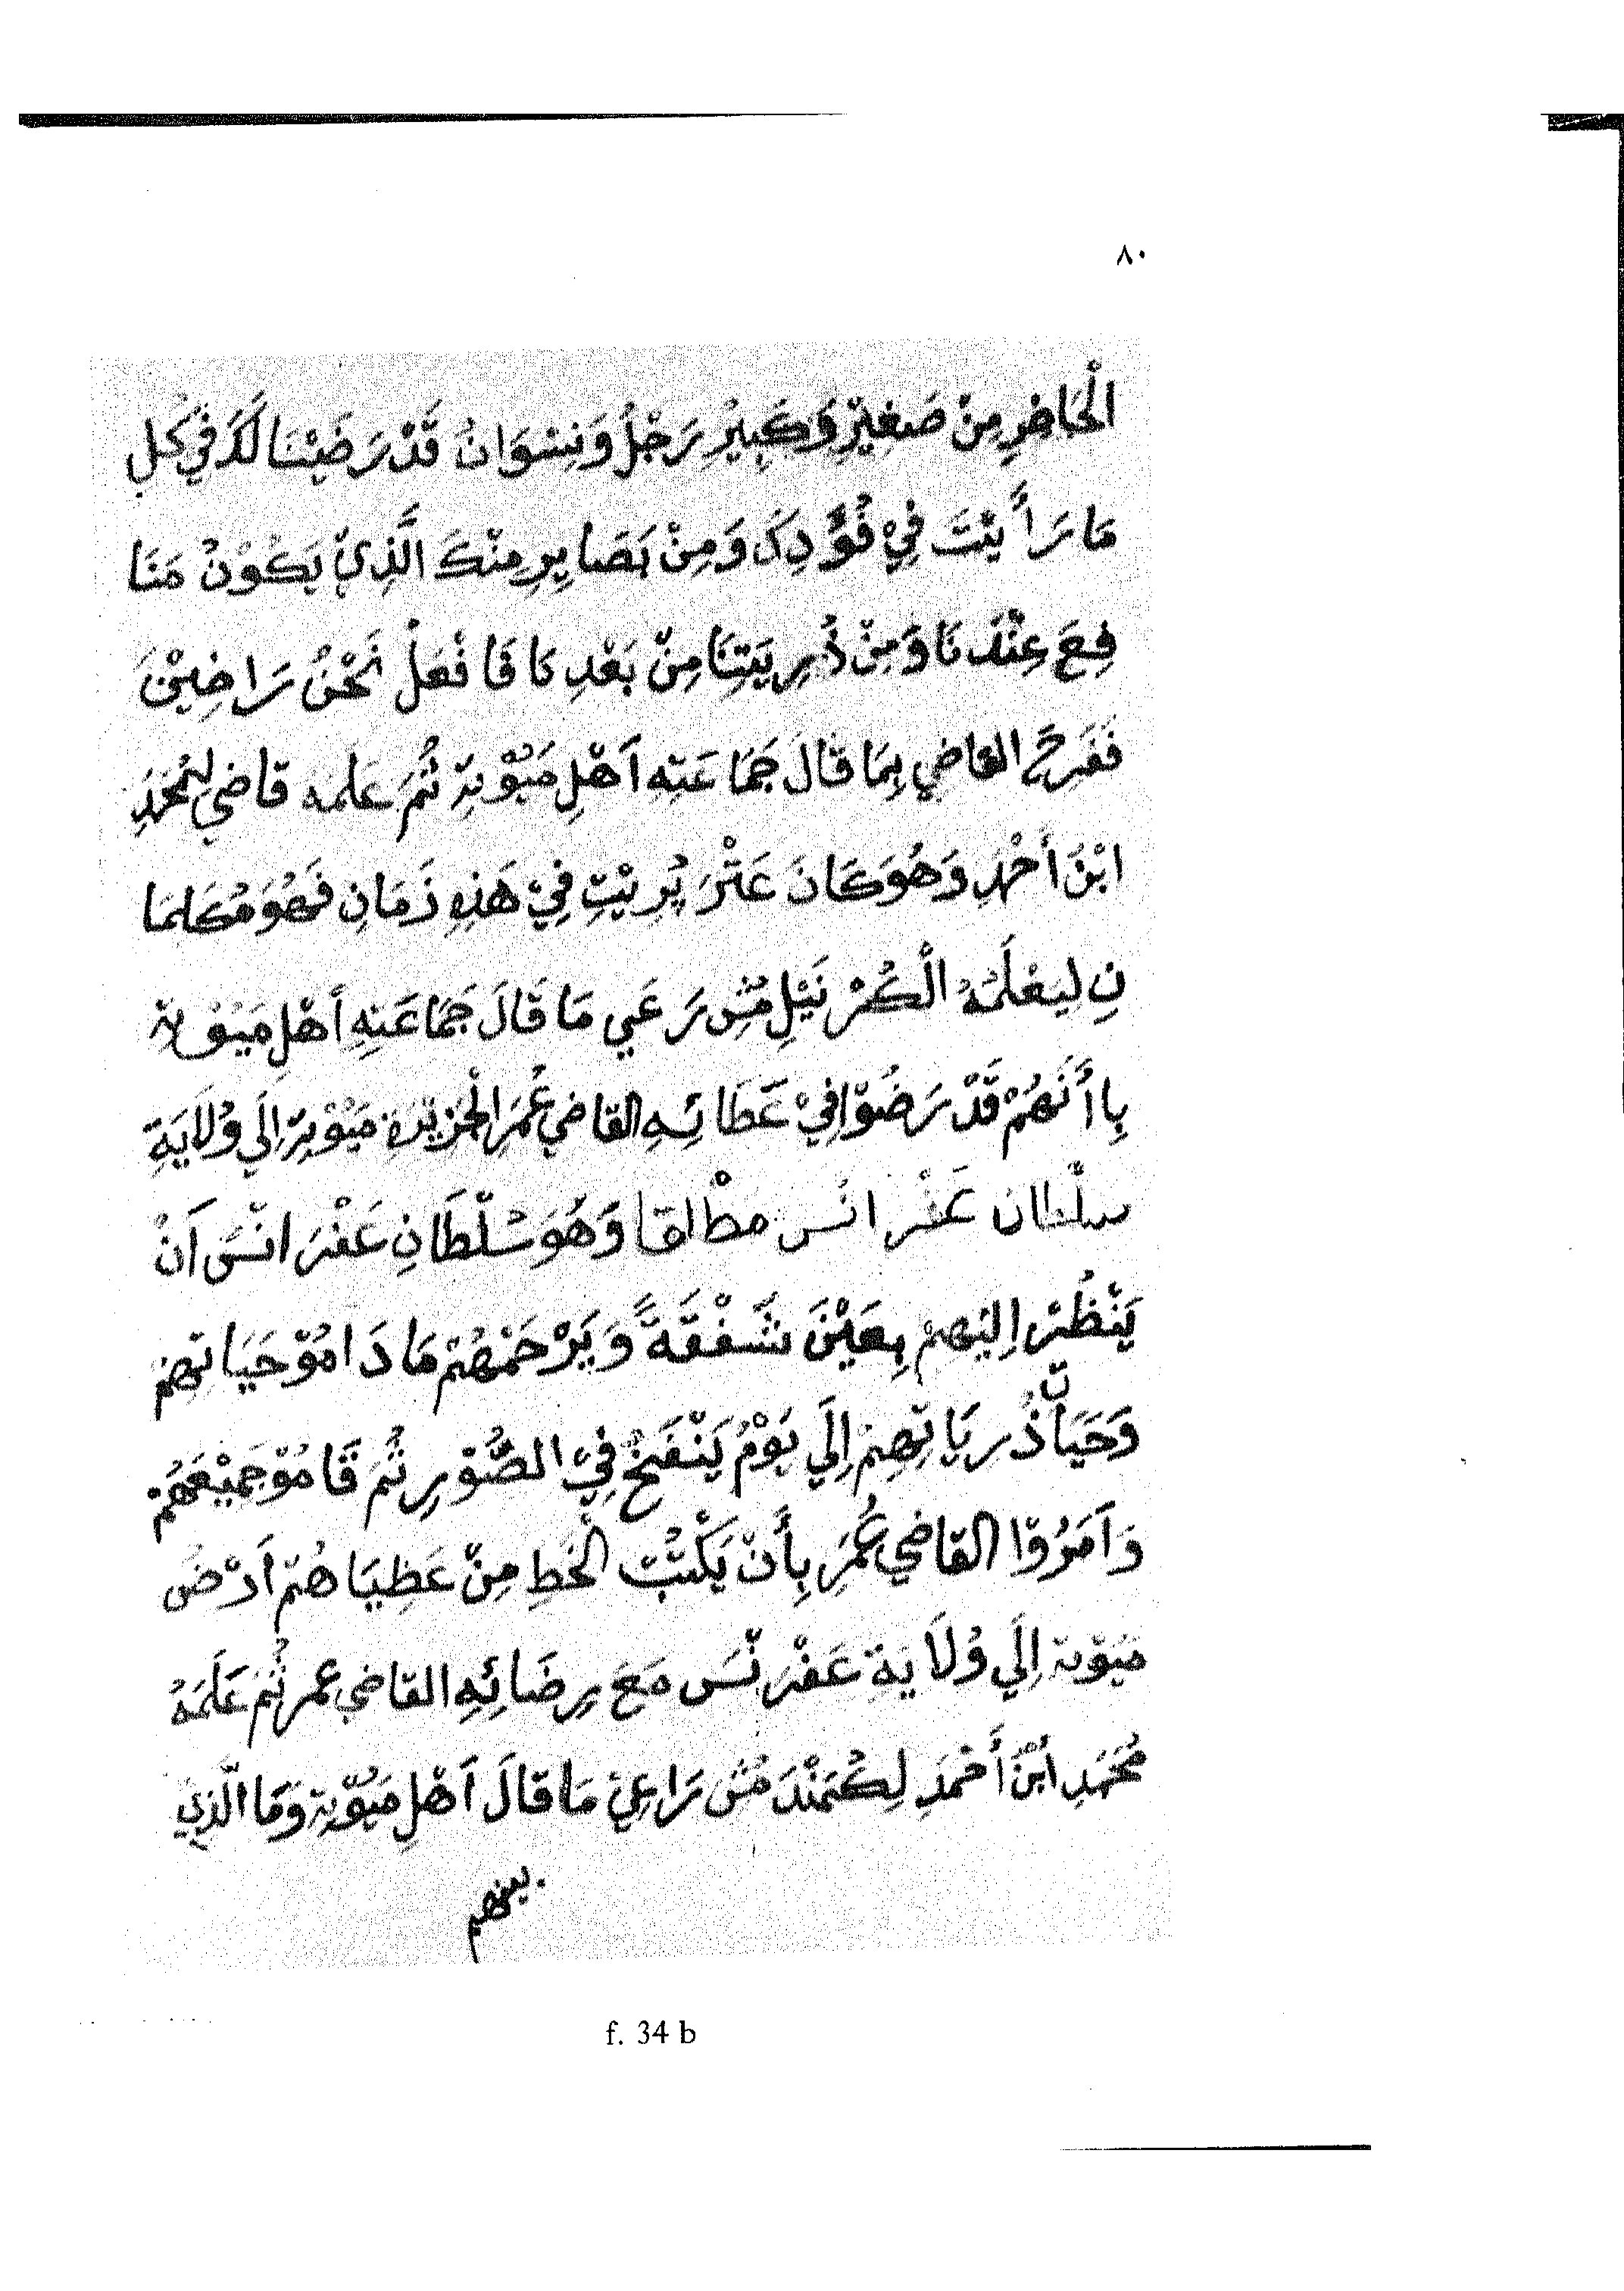 ٨٠
الْحَاضِرِ مِنْ صَغِيْرٍ وَكَبِيْرٍ رَجْلُ وَنِسْوَانُ قَدْ رَضَيْنَا لَكَ فِي كُلِ
مَا رَأَيْتَ فِيْ فُؤَدِكَ وَمِنْ بَصَايِرِ مِنْكَ الَّذِيْ يَكُوْنُ مَنَا
فِعَ عِنْدَنَا وَمِنْ ذُرِيَتِنَا مِنْ بَعْدِنَا فَافْعَلْ نَحْنُ رَاضِيْنَ
فَفَرِحَ القاضي بِمَا قَالَ جَمَاعَتِهِ اَهْلِ مَيُوْتِةِ ثُمَ عَلمه قاضي لمُحَمَدِ
ابْنُ أَحْمَدِ وَهُوَ كَانَ عَتْرَ بُرِيْتِ فِيْ هَذِهِ زَمَانِ فَهُوَ مُكَلمَا
نِ ليَعْلَمُهُ الْكُرْنَيْلِ مُسْ رَعَي مَا قَالَ جَمَاعَتِهِ أَهْلِ مَيُوْتة
بِاأَنَهُمْ قَدْ رَضُوْا فِيْ عَطَائِهِ القاضي عُمَرَ الْجَزِيْرَةِ مَيُوْتِة اِلَي وُلَايَةِ
سلْطان عَفْرانْس مطْالقا وَهُوَ سُلْطَانِ عَفْرَانْسَ اَنْ
يَنْظُرْ اِليْهِمْ بِعَيْنَ شَفْقَةً وَيَرْحَمْهُمْ مَا دَامُوْ حَيَاتهِمْ
وَحَيَاتّ ذُرِيَاتِهِمْ اِلَي يَوْمُ يَنْفَخُ فِيْ الصُّوْرِ ثُمَ قَامُوْ جَمِيْعَهُمْ
وَاَمَرُوْا القاضي عُمَرِ بِأَنْ يَكْتُبْ الْخَطِ مِنْ عَطِيَاهُمْ اَرْضُ
مَيُوْتة اِلَي وُلَايَةِ عَفْرَنْسَ مَعَ رِضَائِهِ القاضي عمر ثُمَ عَلَمَهُ
مُحَمَدِ ابْنُ أَحْمَدِ لِكُمَنْدَ مُسْ رَاعِيْ مَا قَالَ اَهْلِ مَيُوْتِة وَمَا الَّذِيْ
بينهم
f. 34 b